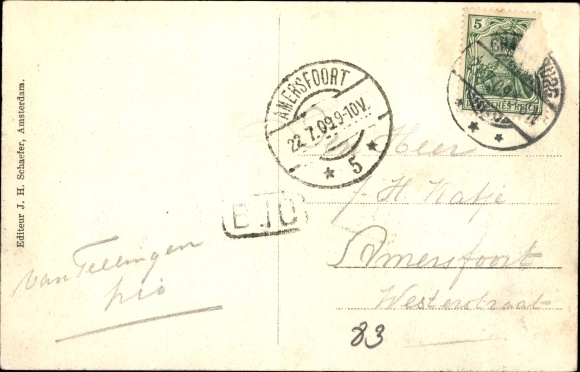 Editeur J. H. Schaefer, Amsterdam.
van Tellingen
5
DEUTSCHES REICH
AMERSFOORT
22.7.09 9-10V.
5
Heer
Amersfoort
Westerstraat
83